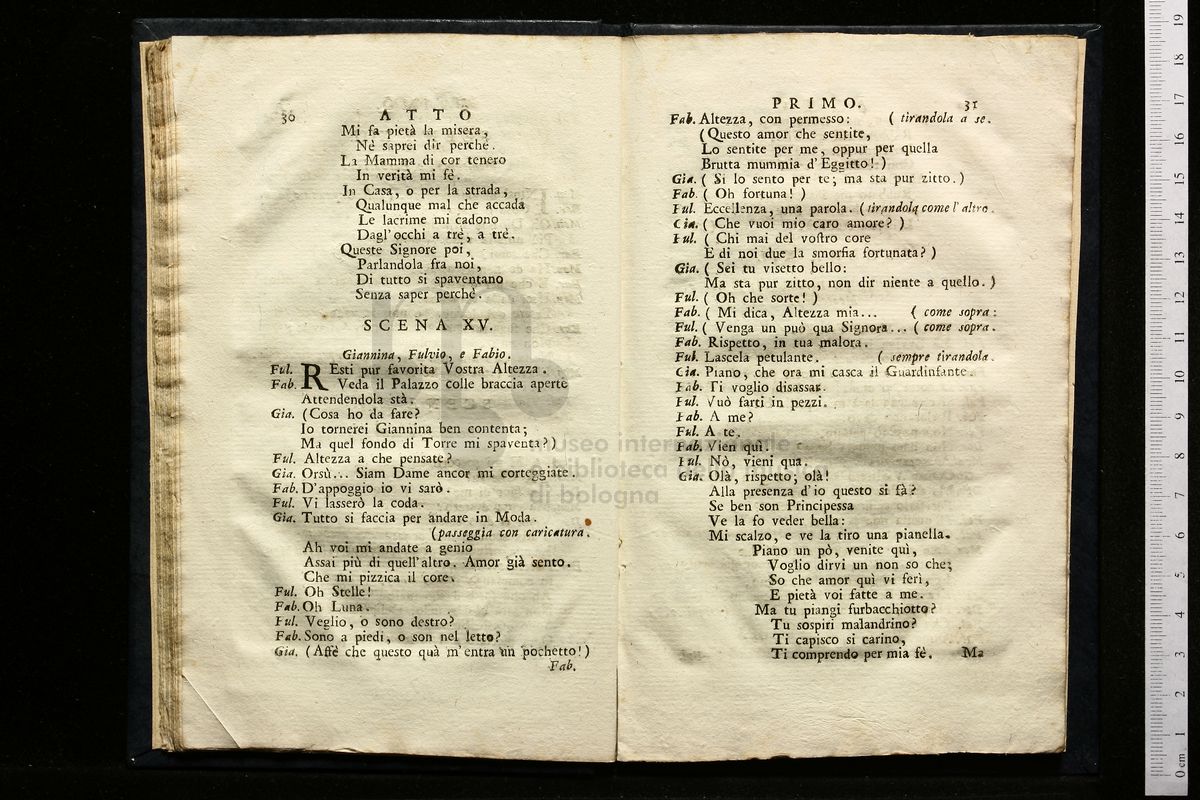 30 ATTO
Mi fa pietà la misera,
Nè saprei dir perchè.
La Mamma di cor tenero
In verità mi fè.
In Casa, o per la strada,
Qualunque mal che accada
Le lacrime mi cadono
Dagl'occhi a trè, a trè.
Queste Signore poi,
Parlandola fra noi,
Di tutto si spaventano
Senza saper perchè.
SCENA XV.
Giannina, Fulvio, e Fabio.
Ful. REsti pur favorita Vostra Altezza.
Fab. Veda il Palazzo colle braccia aperte
Attendendola stà.
Gia. (Cosa ho da fare?
Io tornerei Giannina ben contenta;
Ma quel fondo di Torre mi spaventa?)
Ful. Altezza a che pensate?
Gia. Orsù... Siam Dame ancor mi corteggiate.
Fab. D'appoggio io vi sarò.
Ful. Vi lasserò la coda.
Gia. Tutto si faccia per andare in Moda.
(passeggia con caricatura.
Ah voi mi andate a genio
Assai più di quell'altro. Amor già sento.
Che mi pizzica il core.
Ful. Oh Stelle!
Fab. Oh Luna.
Ful. Veglio, o sono destro?
Fab. Sono a piedi, o son nel letto?
Gia. (Affè che questo quà m'entra un pochetto!)
Fab.
PRIMO. 31
Fab. Altezza, con permesso: (tirandola a se.
(Questo amor che sentite,
Lo sentite per me, oppur per quella
Brutta mummia d'Eggitto!)
Gia. (Si lo sento per te; ma sta pur zitto.)
Fab. (Oh fortuna!)
Ful. Eccellenza, una parola. (tirandola come l'altro.
Gia. (Che vuoi mio caro amore?)
Ful. (Chi mai del vostro core
E di noi due la smorfia fortunata?)
Gia. (Sei tu visetto bello:
Ma sta pur zitto, non dir niente a quello.)
Ful. (Oh che sorte!)
Fab. (Mi dica, Altezza mia... (come sopra:
Ful. (Venga un può qua Signora... (come sopra.
Fab. Rispetto, in tua malora.
Ful. Lascela petulante. (sempre tirandola.
Gia. Piano, che ora mi casca il Guardinfante.
Fab. Ti voglio disassar.
Ful. Vuò farti in pezzi.
Fab. A me?
Ful. A te.
Fab. Vien quì.
Ful. Nò, vieni qua.
Gia. Olà, rispetto; olà!
Alla presenza d'io questo si fà?
Se ben son Principessa
Ve la fo veder bella:
Mi scalzo, e ve la tiro una pianella.
Piano un pò, venite quì,
Voglio dirvi un non so che;
So che amor quì vi ferì,
E pietà voi fatte a me.
Ma tu piangi furbacchiotto?
Tu sospiri malandrino?
Ti capisco si carino,
Ti comprendo per mia fè. Ma
museo internazionale
biblioteca della musica
di bologna
0 cm 1 2 3 4 5 6 7 8 9 10 11 12 13 14 15 16 17 18 19